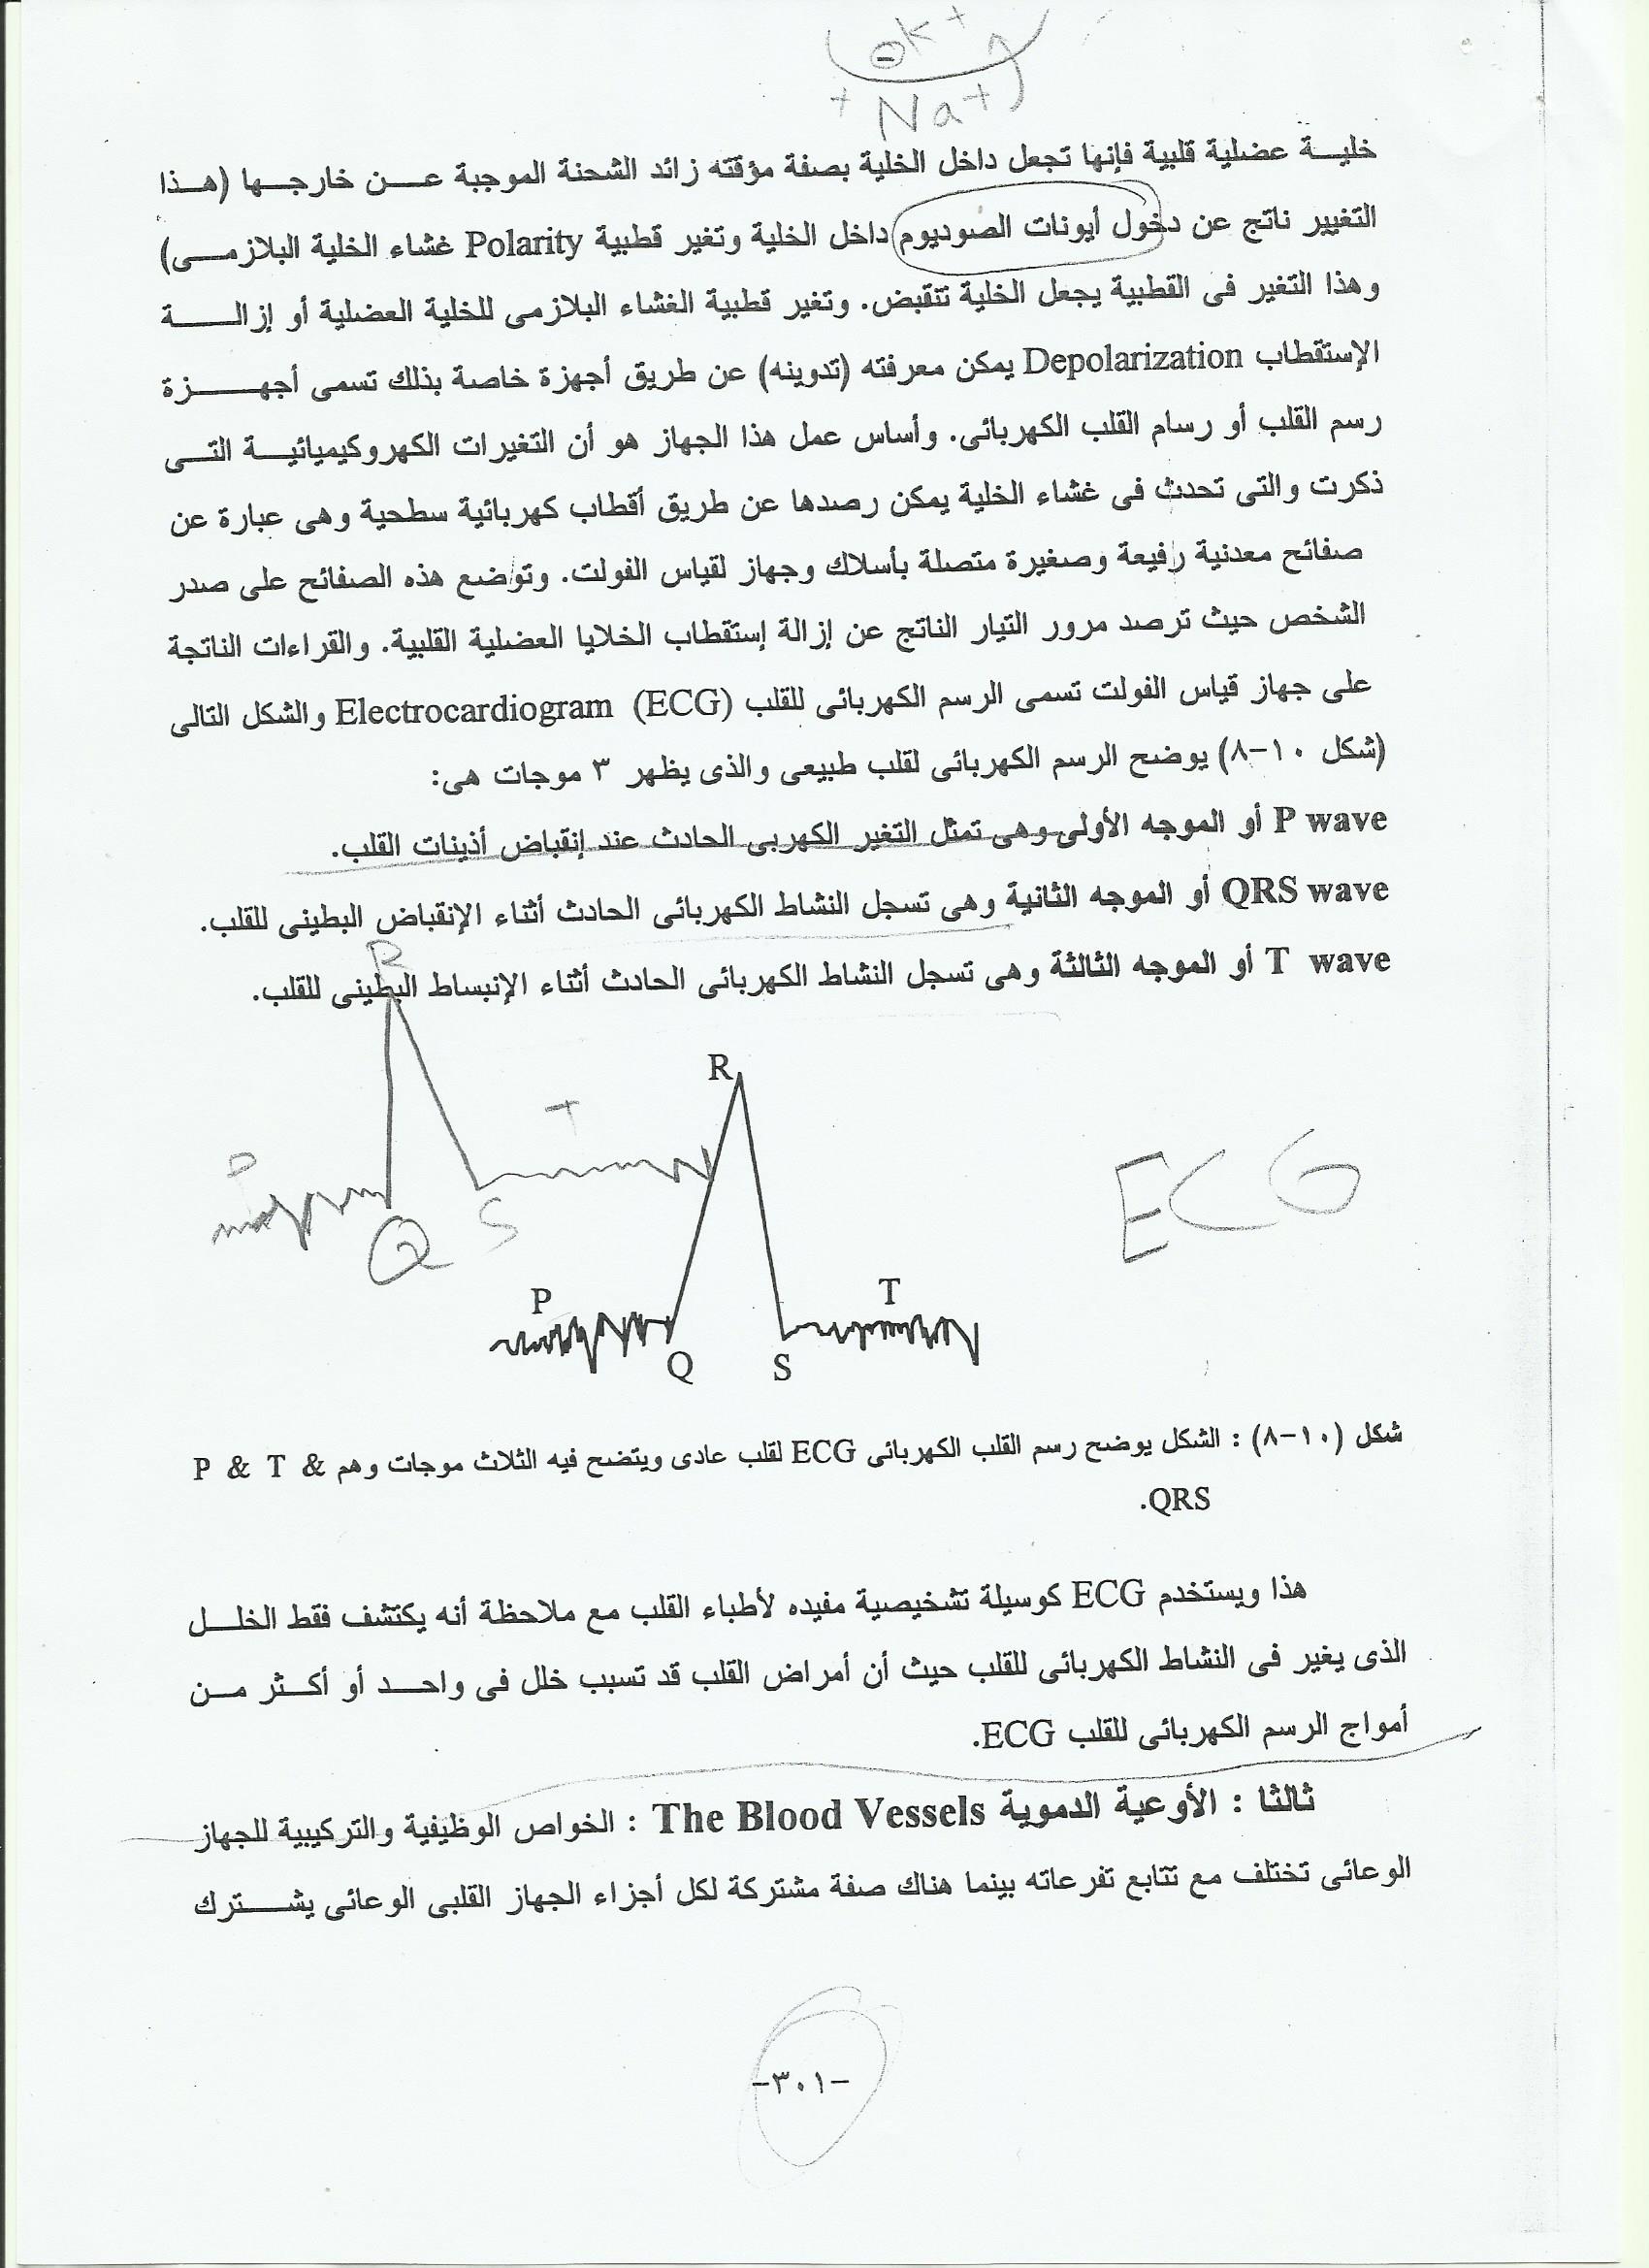 K+
+ Na+
خلية عضلية قلبية فإنها تجعل داخل الخلية بصفة مؤقته زائد الشحنة الموجبة عن خارجها (هذا
التغيير ناتج عن دخول أيونات الصوديوم داخل الخلية وتغير قطبية Polarity غشاء الخلية البلازمى)
وهذا التغير فى القطبية يجعل الخلية تنقبض. وتغير قطبية الغشاء البلازمى للخلية العضلية أو إزالة
الإستقطاب Depolarization يمكن معرفته (تدوينه) عن طريق أجهزة خاصة بذلك تسمى أجهزة
رسم القلب أو رسام القلب الكهربائى. وأساس عمل هذا الجهاز هو أن التغيرات الكهروكيميائية التى
ذكرت والتى تحدث فى غشاء الخلية يمكن رصدها عن طريق أقطاب كهربائية سطحية وهى عبارة عن
صفائح معدنية رفيعة وصغيرة متصلة بأسلاك وجهاز لقياس الفولت. وتوضع هذه الصفائح على صدر
الشخص حيث ترصد مرور التيار الناتج عن إزالة إستقطاب الخلايا العضلية القلبية. والقراءات الناتجة
على جهاز قياس الفولت تسمى الرسم الكهربائى للقلب Electrocardiogram (ECG) والشكل التالى
(شكل ١٠-٨) يوضح الرسم الكهربائى لقلب طبيعى والذى يظهر ٣ موجات هى:
P wave أو الموجه الأولى وهى تمثل التغير الكهربى الحادث عند إنقباض أذينات القلب.
QRS wave أو الموجه الثانية وهى تسجل النشاط الكهربائى الحادث أثناء الإنقباض البطينى للقلب.
T wave أو الموجه الثالثة وهى تسجل النشاط الكهربائى الحادث أثناء الإنبساط البطينى للقلب.
R
P
Q
S
T
ECG
R
P
Q
S
T
شكل (١٠-٨) : الشكل يوضح رسم القلب الكهربائى ECG لقلب عادى ويتضح فيه الثلاث موجات وهم P & T &
QRS.
هذا ويستخدم ECG كوسيلة تشخيصية مفيده لأطباء القلب مع ملاحظة أنه يكتشف فقط الخلل
الذى يغير فى النشاط الكهربائى للقلب حيث أن أمراض القلب قد تسبب خلل فى واحد أو أكثر من
أمواج الرسم الكهربائى للقلب ECG.
ثالثا : الأوعية الدموية The Blood Vessels : الخواص الوظيفية والتركيبية للجهاز
الوعائى تختلف مع تتابع تفرعاته بينما هناك صفة مشتركة لكل أجزاء الجهاز القلبى الوعائى يشترك
-٣٠١-